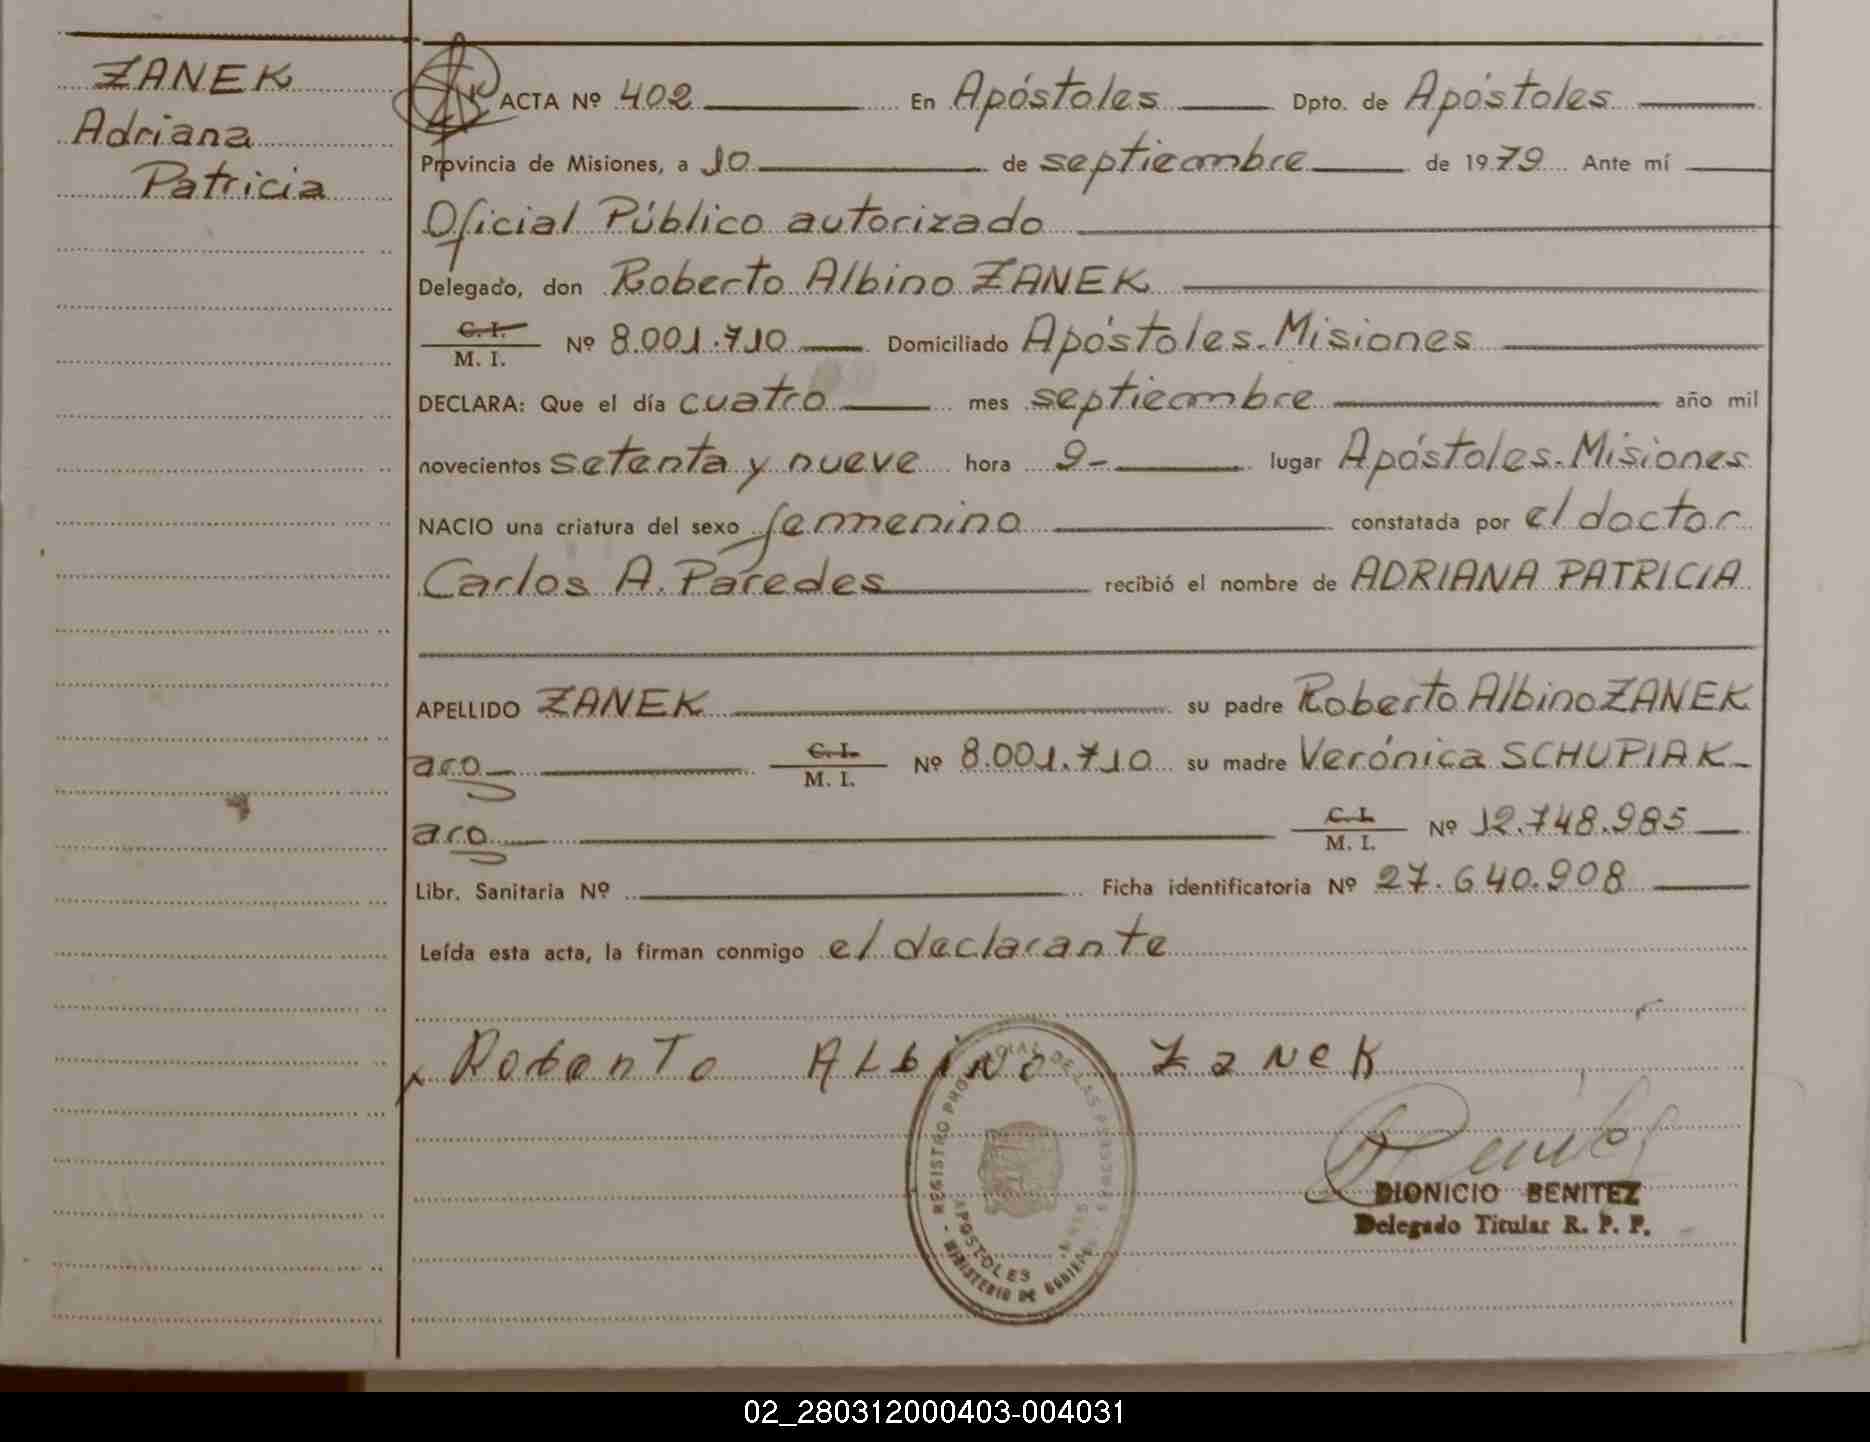 ZANEK
Adriana
Patricia
ACTA Nº 402 En Apóstoles Dpto. de Apóstoles
Provincia de Misiones, a 10 de septiembre de 1979 Ante mí
Oficial Público autorizado
Delegado, don Roberto Albino ZANEK
C. I.
M. I. Nº 8.001.710 Domiciliado Apóstoles-Misiones
DECLARA: Que el día cuatro mes septiembre año mil
novecientos setenta y nueve hora 9- lugar Apóstoles-Misiones
NACIO una criatura del sexo femenino constatada por el doctor
Carlos A. Paredes recibió el nombre de ADRIANA PATRICIA
APELLIDO ZANEK su padre Roberto Albino ZANEK
arg C. I. M. I. Nº 8.001.710 su madre Verónica SCHUPIAK-
arg C. I. M. I. Nº 12.748.985
Libr. Sanitaria Nº Ficha identificatoria Nº 27.640.908
Leída esta acta, la firman conmigo el declarante
Roberto ALbino Zanek
REGISTRO PROVINCIAL DE LAS PERSONAS
APOSTOLES
MINISTERIO DE GOBIERNO
DIONICIO BENITEZ
Delegado Titular R. P. P.
02_280312000403-004031